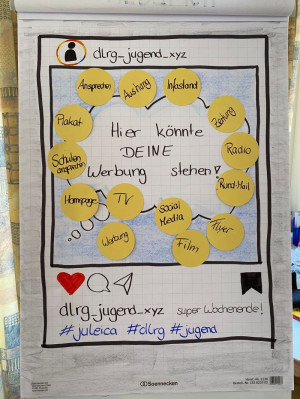 dlrg_jugend_xyz
Ansprechen
Aushang
Infostand
Zeitung
Plakat
Hier könnte
DEINE
Werbung stehen!
Radio
Schulen
ansprechen
Rund-Mail
Homepage
TV
Social
Media
Flyer
Werbung
Film
dlrg_jugend_xyz super Wochenende!
#juleica #dlrg #jugend
Soennecken